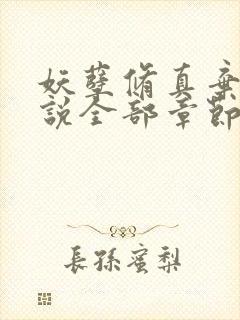 妖孽脩真棄
說全部章節
長孫蜜梨